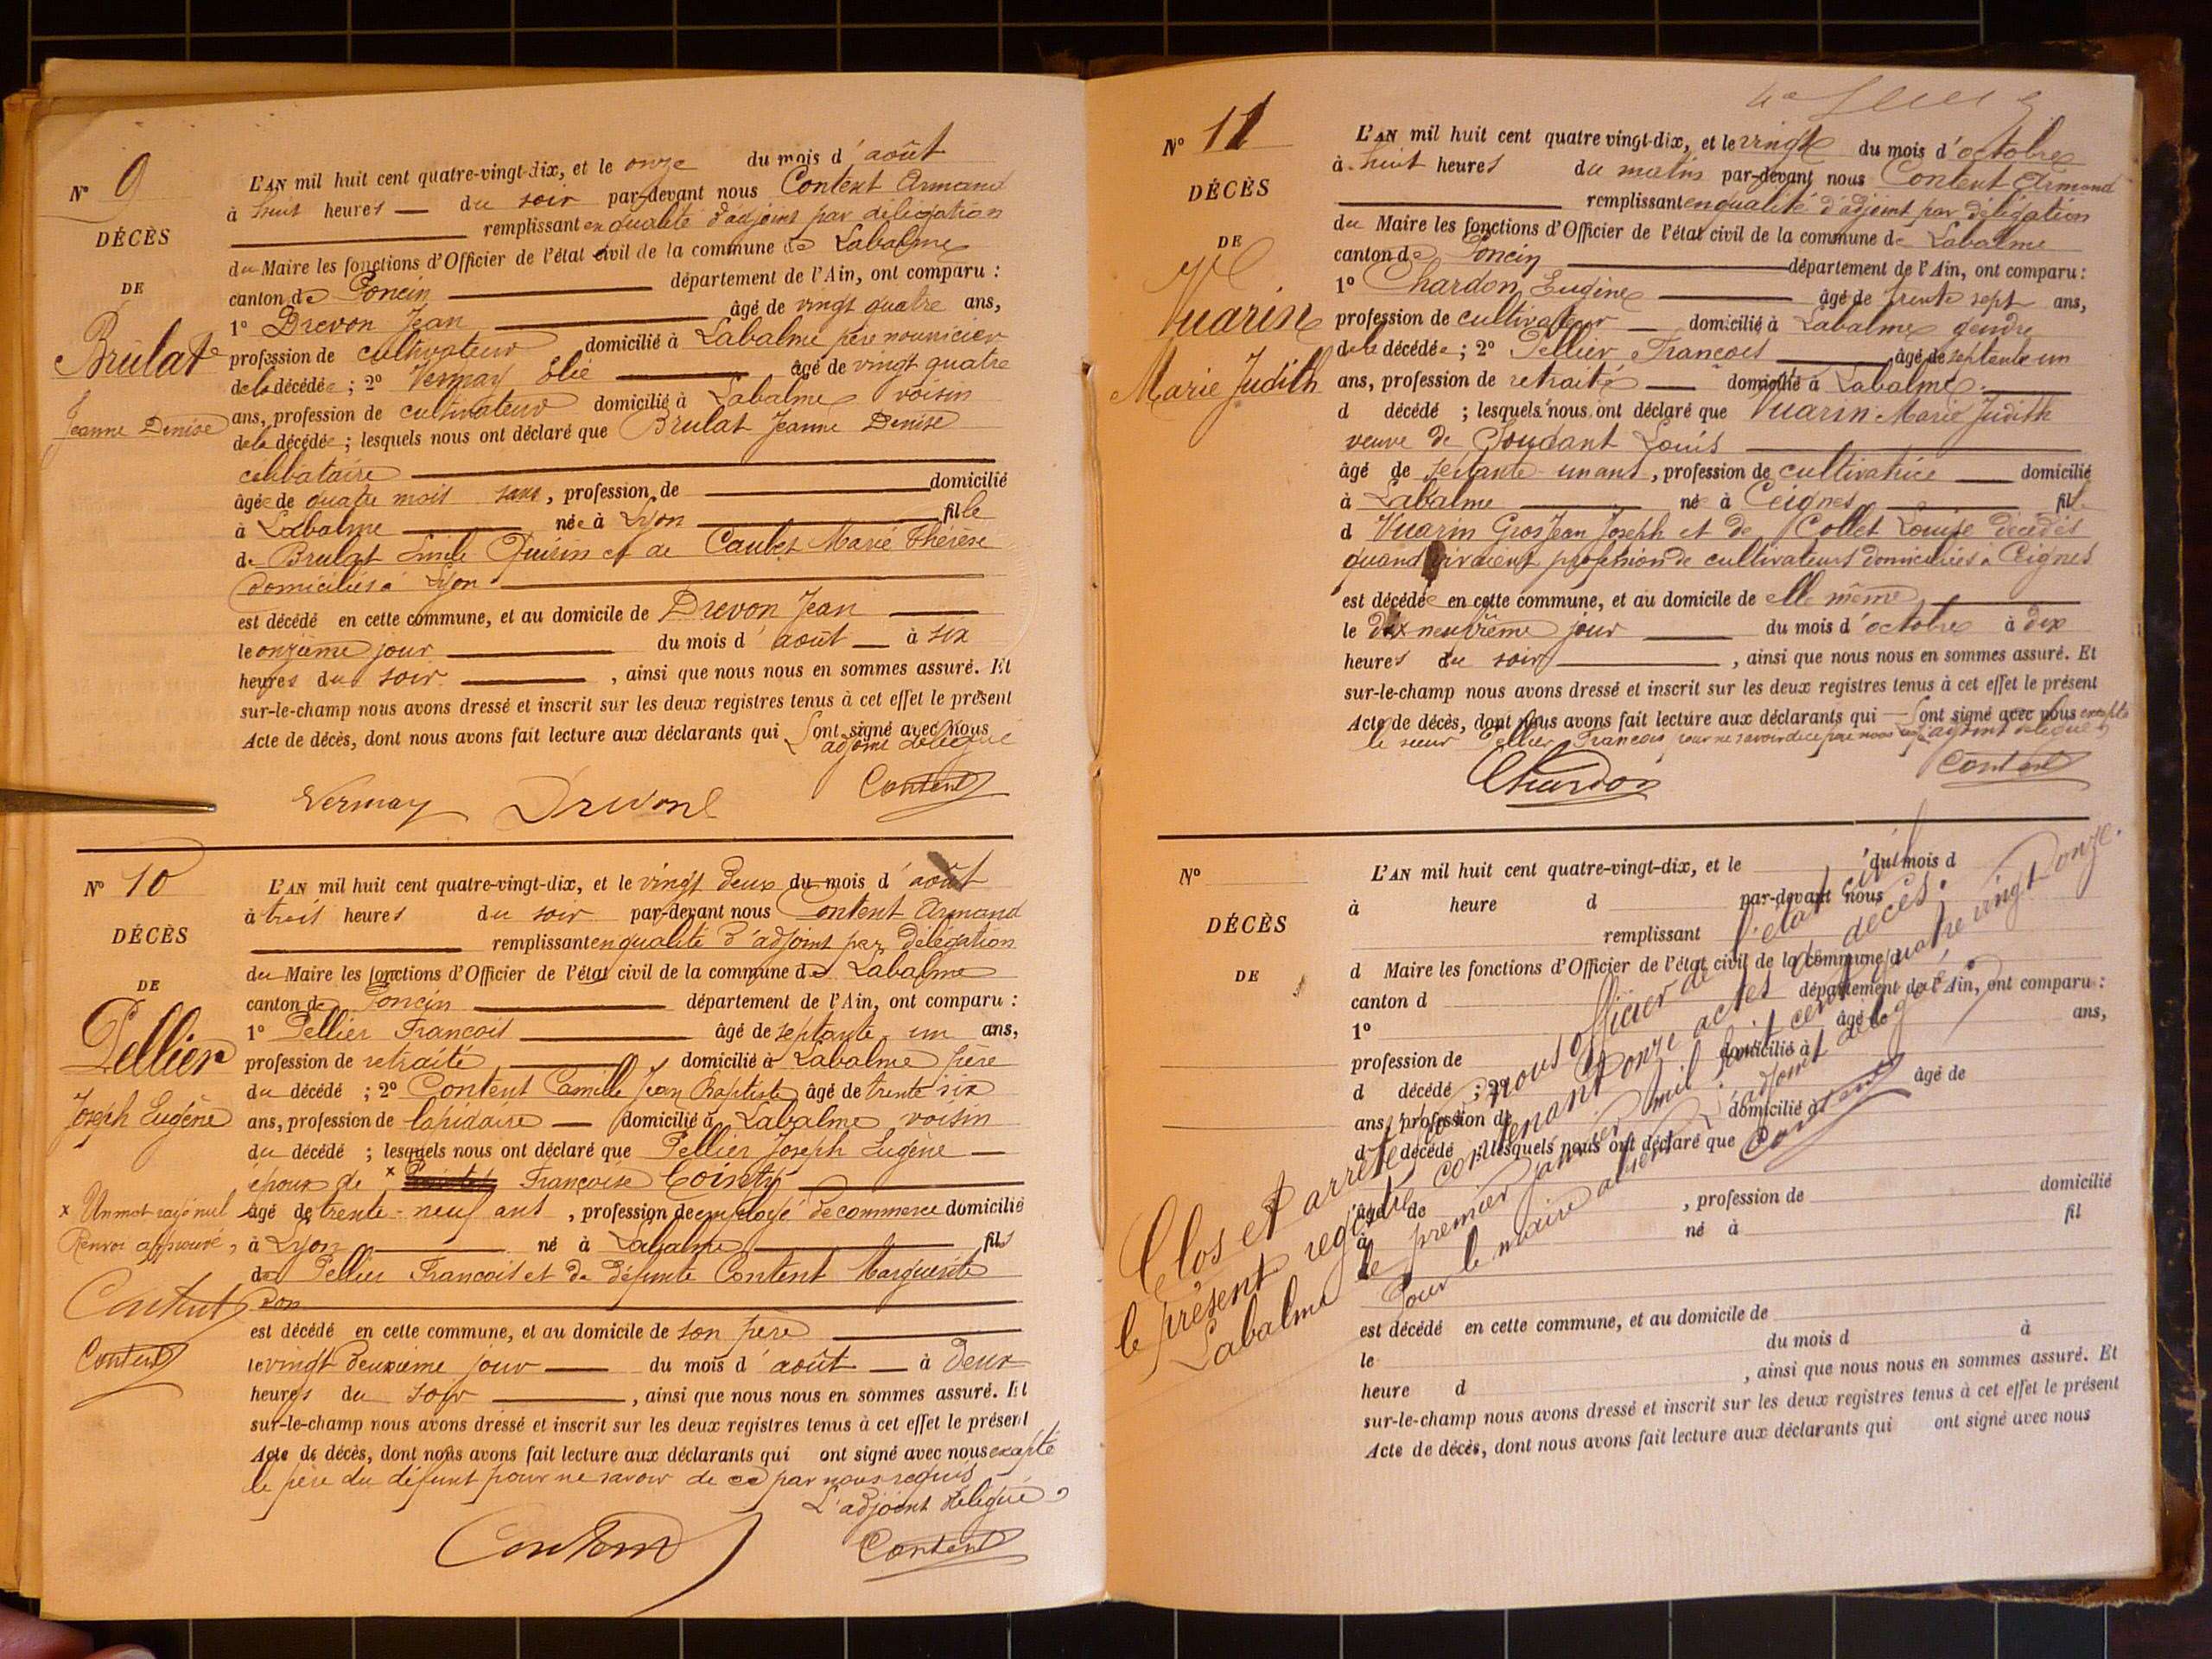 N° 9
DÉCÈS
DE
Brulat
Jeanne Denise
L'AN mil huit cent quatre-vingt-dix, et le onze du mois d'août
à huit heures du soir par-devant nous Content Armand
remplissant en qualité d'adjoint par délégation
du Maire les fonctions d'Officier de l'état civil de la commune de Labalme
canton de Poncin département de l'Ain, ont comparu :
1° Drevon Jean âgé de vingt quatre ans,
profession de cultivateur domicilié à Labalme père nourricier
de la décédée ; 2° Vermay Elie âgé de vingt quatre
ans, profession de cultivateur domicilié à Labalme voisin
de la décédée ; lesquels nous ont déclaré que Brulat Jeanne Denise
célibataire
âgée de quatre mois sans, profession de domicilié
à Labalme née à Lyon fille
de Brulat Emile et de Caubet Marie Thérèse
domiciliés à Lyon
est décédé en cette commune, et au domicile de Drevon Jean
le onzième jour du mois d'août à six
heures du soir, ainsi que nous nous en sommes assuré. Et
sur-le-champ nous avons dressé et inscrit sur les deux registres tenus à cet effet le présent
Acte de décès, dont nous avons fait lecture aux déclarants qui ont signé avec nous
adjoint délégué
Vermay Drevon Content
N° 10
DÉCÈS
DE
Pellier
Joseph Eugène
x Un mot rayé nul
Renvoi approuvé,
Content
Content
L'AN mil huit cent quatre-vingt-dix, et le vingt deux du mois d'août
à trois heures du soir par-devant nous Content Armand
remplissant en qualité d'adjoint par délégation
du Maire les fonctions d'Officier de l'état civil de la commune de Labalme
canton de Poncin département de l'Ain, ont comparu :
1° Pellier Francois âgé de septante un ans,
profession de retraité domicilié à Labalme père
du décédé ; 2° Content Camille Jean Baptiste âgé de trente six
ans, profession de lapidaire domicilié à Labalme voisin
du décédé ; lesquels nous ont déclaré que Pellier Joseph Eugène
époux de x Françoise Cointy
âgé de trente-neuf ans, profession de employé de commerce domicilié
à Lyon né à Labalme fils
de Pellier Francois et de défunte Content Marguerite
est décédé en cette commune, et au domicile de son père
le vingt deuxième jour du mois d'août à deux
heures du soir, ainsi que nous nous en sommes assuré. Et
sur-le-champ nous avons dressé et inscrit sur les deux registres tenus à cet effet le présent
Acte de décès, dont nous avons fait lecture aux déclarants qui ont signé avec nous excepté
le père du défunt pour ne savoir de ce par nous requis
L'adjoint délégué
Content Content
N° 11
DÉCÈS
DE
Vuarin
Marie Judith
L'AN mil huit cent quatre vingt-dix, et le vingt du mois d'octobre
à huit heures du matin par-devant nous Content Armand
remplissant en qualité d'adjoint par délégation
du Maire les fonctions d'Officier de l'état civil de la commune de Labalme
canton de Poncin département de l'Ain, ont comparu :
1° Chardon Eugène âgé de trente sept ans,
profession de cultivateur domicilié à Labalme gendre
de la décédée ; 2° Pellier Francois âgé de septante un
ans, profession de retraité domicilié à Labalme
d décédé ; lesquels nous ont déclaré que Vuarin Marie Judith
veuve de Goudant Louis
âgé de septante-un ans, profession de cultivatrice domicilié
à Labalme née à Ceignes fille
d Vuarin Gros Jean Joseph et de Collet Louise décédés
quand vivaient profession de cultivateurs domiciliés à Ceignes
est décédée en cette commune, et au domicile de elle même
le dix neuvième jour du mois d'octobre à dix
heures du soir, ainsi que nous nous en sommes assuré. Et
sur-le-champ nous avons dressé et inscrit sur les deux registres tenus à cet effet le présent
Acte de décès, dont nous avons fait lecture aux déclarants qui ont signé avec nous excepté
le sieur Pellier Francois pour ne savoir de ce par nous requis L'adjoint délégué
Chardon Content
N°
DÉCÈS
DE
L'AN mil huit cent quatre-vingt-dix, et le du mois d
à heure d par-devant nous
remplissant
d Maire les fonctions d'Officier de l'état civil de la commune d
canton d département de l'Ain, ont comparu :
1° âgé de ans,
profession de domicilié à
d décédé ; 2° âgé de
ans, profession de domicilié à
d décédé ; lesquels nous ont déclaré que
âgé de , profession de domicilié
à né à fil
est décédé en cette commune, et au domicile de
le du mois d à
heure d , ainsi que nous nous en sommes assuré. Et
sur-le-champ nous avons dressé et inscrit sur les deux registres tenus à cet effet le présent
Acte de décès, dont nous avons fait lecture aux déclarants qui ont signé avec nous
Clos et arrêté par nous officier de l'état civil
le présent registre contenant onze actes de décès.
Labalme le premier janvier mil huit cent quatre vingt onze.
Pour le maire absent L'adjoint délégué
Content